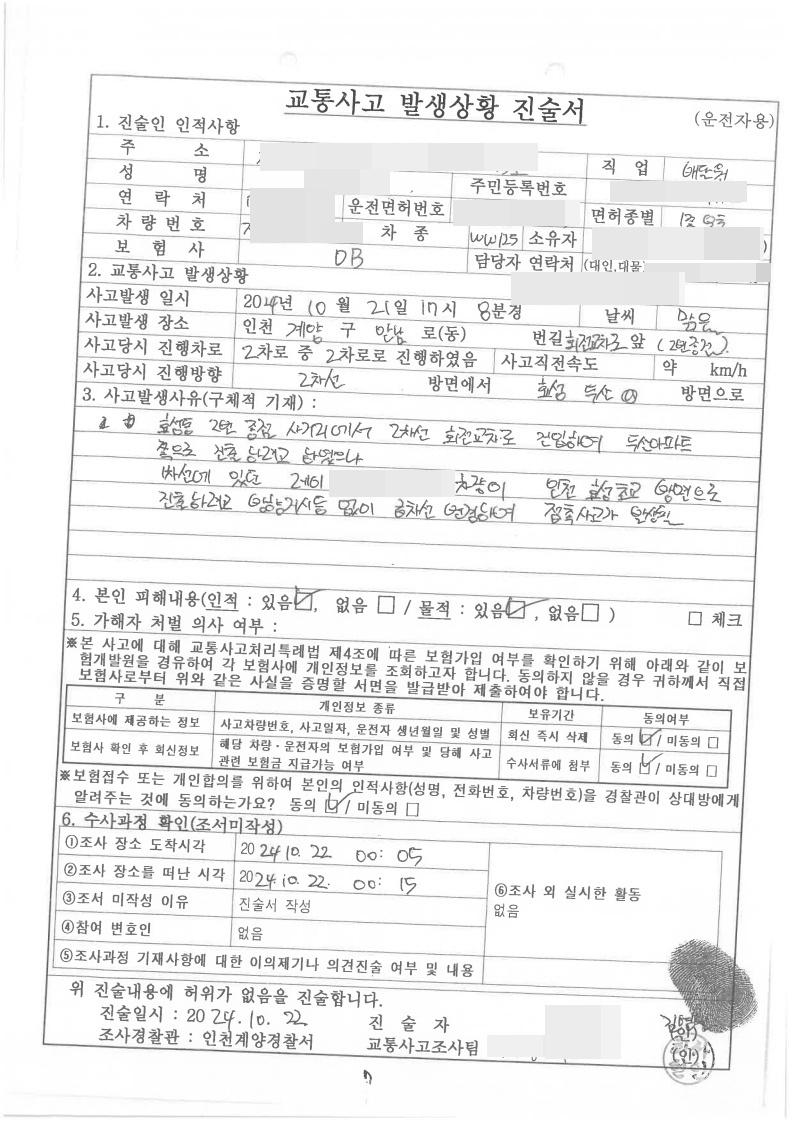 교통사고 발생상황 진술서
(운전자용)
1. 진술인 인적사항
주 소
직 업 배달원
성 명
주민등록번호
연 락 처
운전면허번호
면허종별 1종 보통
차 량 번 호
차 종 WW125 소유자
보 험 사 DB
담당자 연락처 (대인,대물
2. 교통사고 발생상황
사고발생 일시 2024년 10월 21일 17시 8분경 날씨 맑음
사고발생 장소 인천 계양 구 안남 로(동) 번길 회전교차로 앞 (2번종점)
사고당시 진행차로 2차로 중 2차로로 진행하였음 사고직전속도 약 km/h
사고당시 진행방향 2차선 방면에서 효성 두산 방면으로
3. 사고발생사유(구체적 기재) :
효성동 2번 종점 사거리에서 2차선 회전교차로 진입하여 두산아파트
쪽으로 진출하려고 하였으나
1차선에 있던 레이 차량이 인천 효성초교 방면으로
진출하려고 방향지시등 없이 급차선 변경하여 접촉사고가 발생됨
4. 본인 피해내용(인적 : 있음☑, 없음□ / 물적 : 있음☑, 없음□ ) □ 체크
5. 가해자 처벌 의사 여부 :
※본 사고에 대해 교통사고처리특례법 제4조에 따른 보험가입 여부를 확인하기 위해 아래와 같이 보
험개발원을 경유하여 각 보험사에 개인정보를 조회하고자 합니다. 동의하지 않을 경우 귀하께서 직접
보험사로부터 위와 같은 사실을 증명할 서면을 발급받아 제출하여야 합니다.
구 분 개인정보 종류 보유기간 동의여부
보험사에 제공하는 정보 사고차량번호, 사고일자, 운전자 생년월일 및 성별 회신 즉시 삭제 동의 ☑ / 미동의 □
보험사 확인 후 회신정보 해당 차량·운전자의 보험가입 여부 및 당해 사고 관련 보험금 지급가능 여부 수사서류에 첨부 동의 ☑ / 미동의 □
※보험접수 또는 개인합의를 위하여 본인의 인적사항(성명, 전화번호, 차량번호)을 경찰관이 상대방에게
알려주는 것에 동의하는가요? 동의 ☑ / 미동의 □
6. 수사과정 확인(조서미작성)
①조사 장소 도착시각 2024.10.22 00:05
②조사 장소를 떠난 시각 2024.10.22. 00:15
③조서 미작성 이유 진술서 작성
④참여 변호인 없음
⑥조사 외 실시한 활동
없음
⑤조사과정 기재사항에 대한 이의제기나 의견진술 여부 및 내용
위 진술내용에 허위가 없음을 진술합니다.
진술일시 : 2024.10.22 진 술 자 (인)
조사경찰관 : 인천계양경찰서 교통사고조사팀 (인)